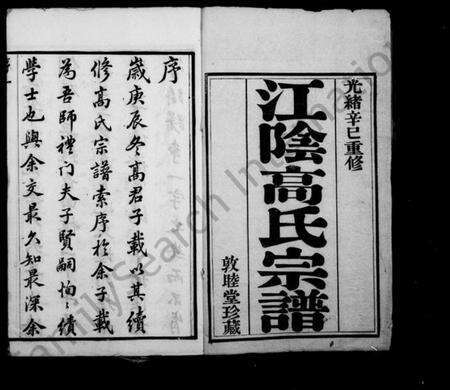 光緒辛巳重修
江陰高氏宗譜
敦睦堂珍藏
序
歲庚辰冬高君子載以其續
修高氏宗譜索序於余子載
為吾師禮門夫子賢嗣恂恂績
學士也與余交最久知最深余
FamilySearch International